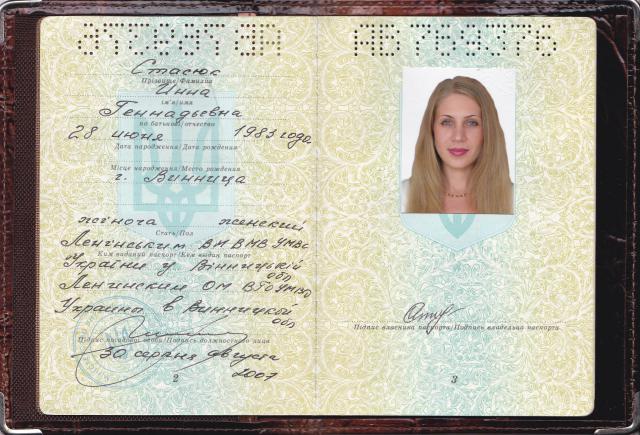 Стасюк
Прізвище/Фамилия
Инна
ім'я/имя
Геннадьевна
по батькові/отчество
28 июня 1983 года
Дата народження/Дата рождения
Місце народження/Место рождения
г. Винница
жіноча женский
Стать/Пол
Ленінським ВМ ВМВ УМВС
Ким виданий паспорт/Кем выдан паспорт
України у Вінницькій
обл
Ленинским ОМ ВГО УМВД
Украины в Винницкой
обл
Підпис посадової особи/Подпись должностного лица
30 серпня августа
2007
2
АВ 789376
Підпис власника паспорта/Подпись владельца паспорта
3